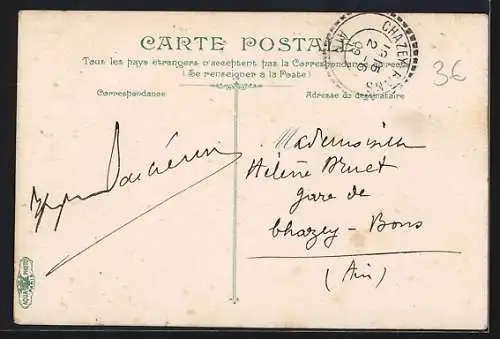 CARTE POSTALE
Tous les pays étrangers n'acceptent pas la Correspondance au recto
(Se renseigner à la Poste)
Correspondance
Adresse du destinataire
CHAZEY-BONS
AIN
3€
Mademoiselle
Hélène Bruet
gare de
Chazey-Bons
(Ain)